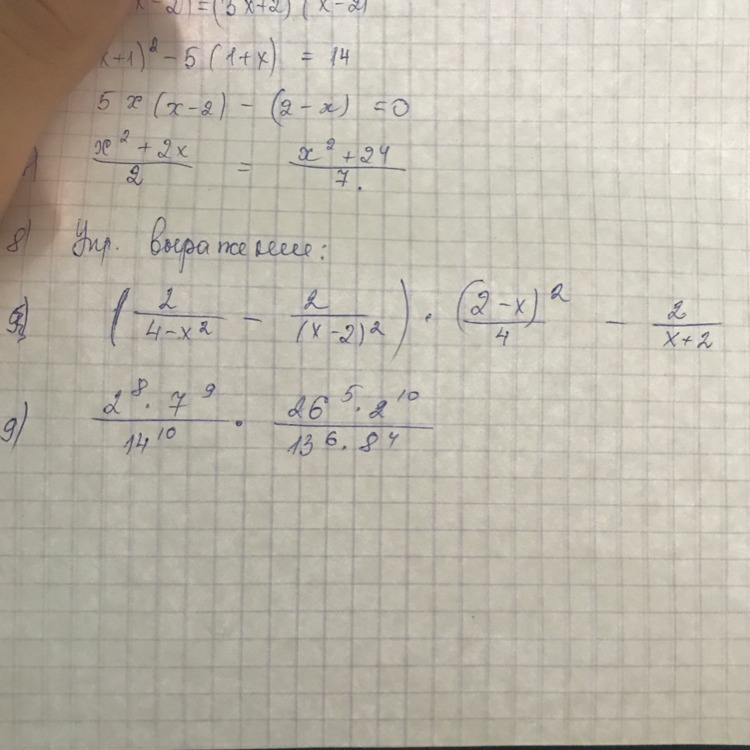 x-2) = (3x+2)(x-2)
x+1)² - 5(1+x) = 14
5x(x-2) - (2-x) = 0
(x² + 2x)/2 = (x² + 24)/7.
8) Упр. выражение:
(2/(4-x²) - 2/(x-2)²) · (2-x)²/4 - 2/(x+2)
9) (2⁸ · 7⁹)/14¹⁰ · (26⁵ · 2¹⁰)/(13⁶ · 8⁴)